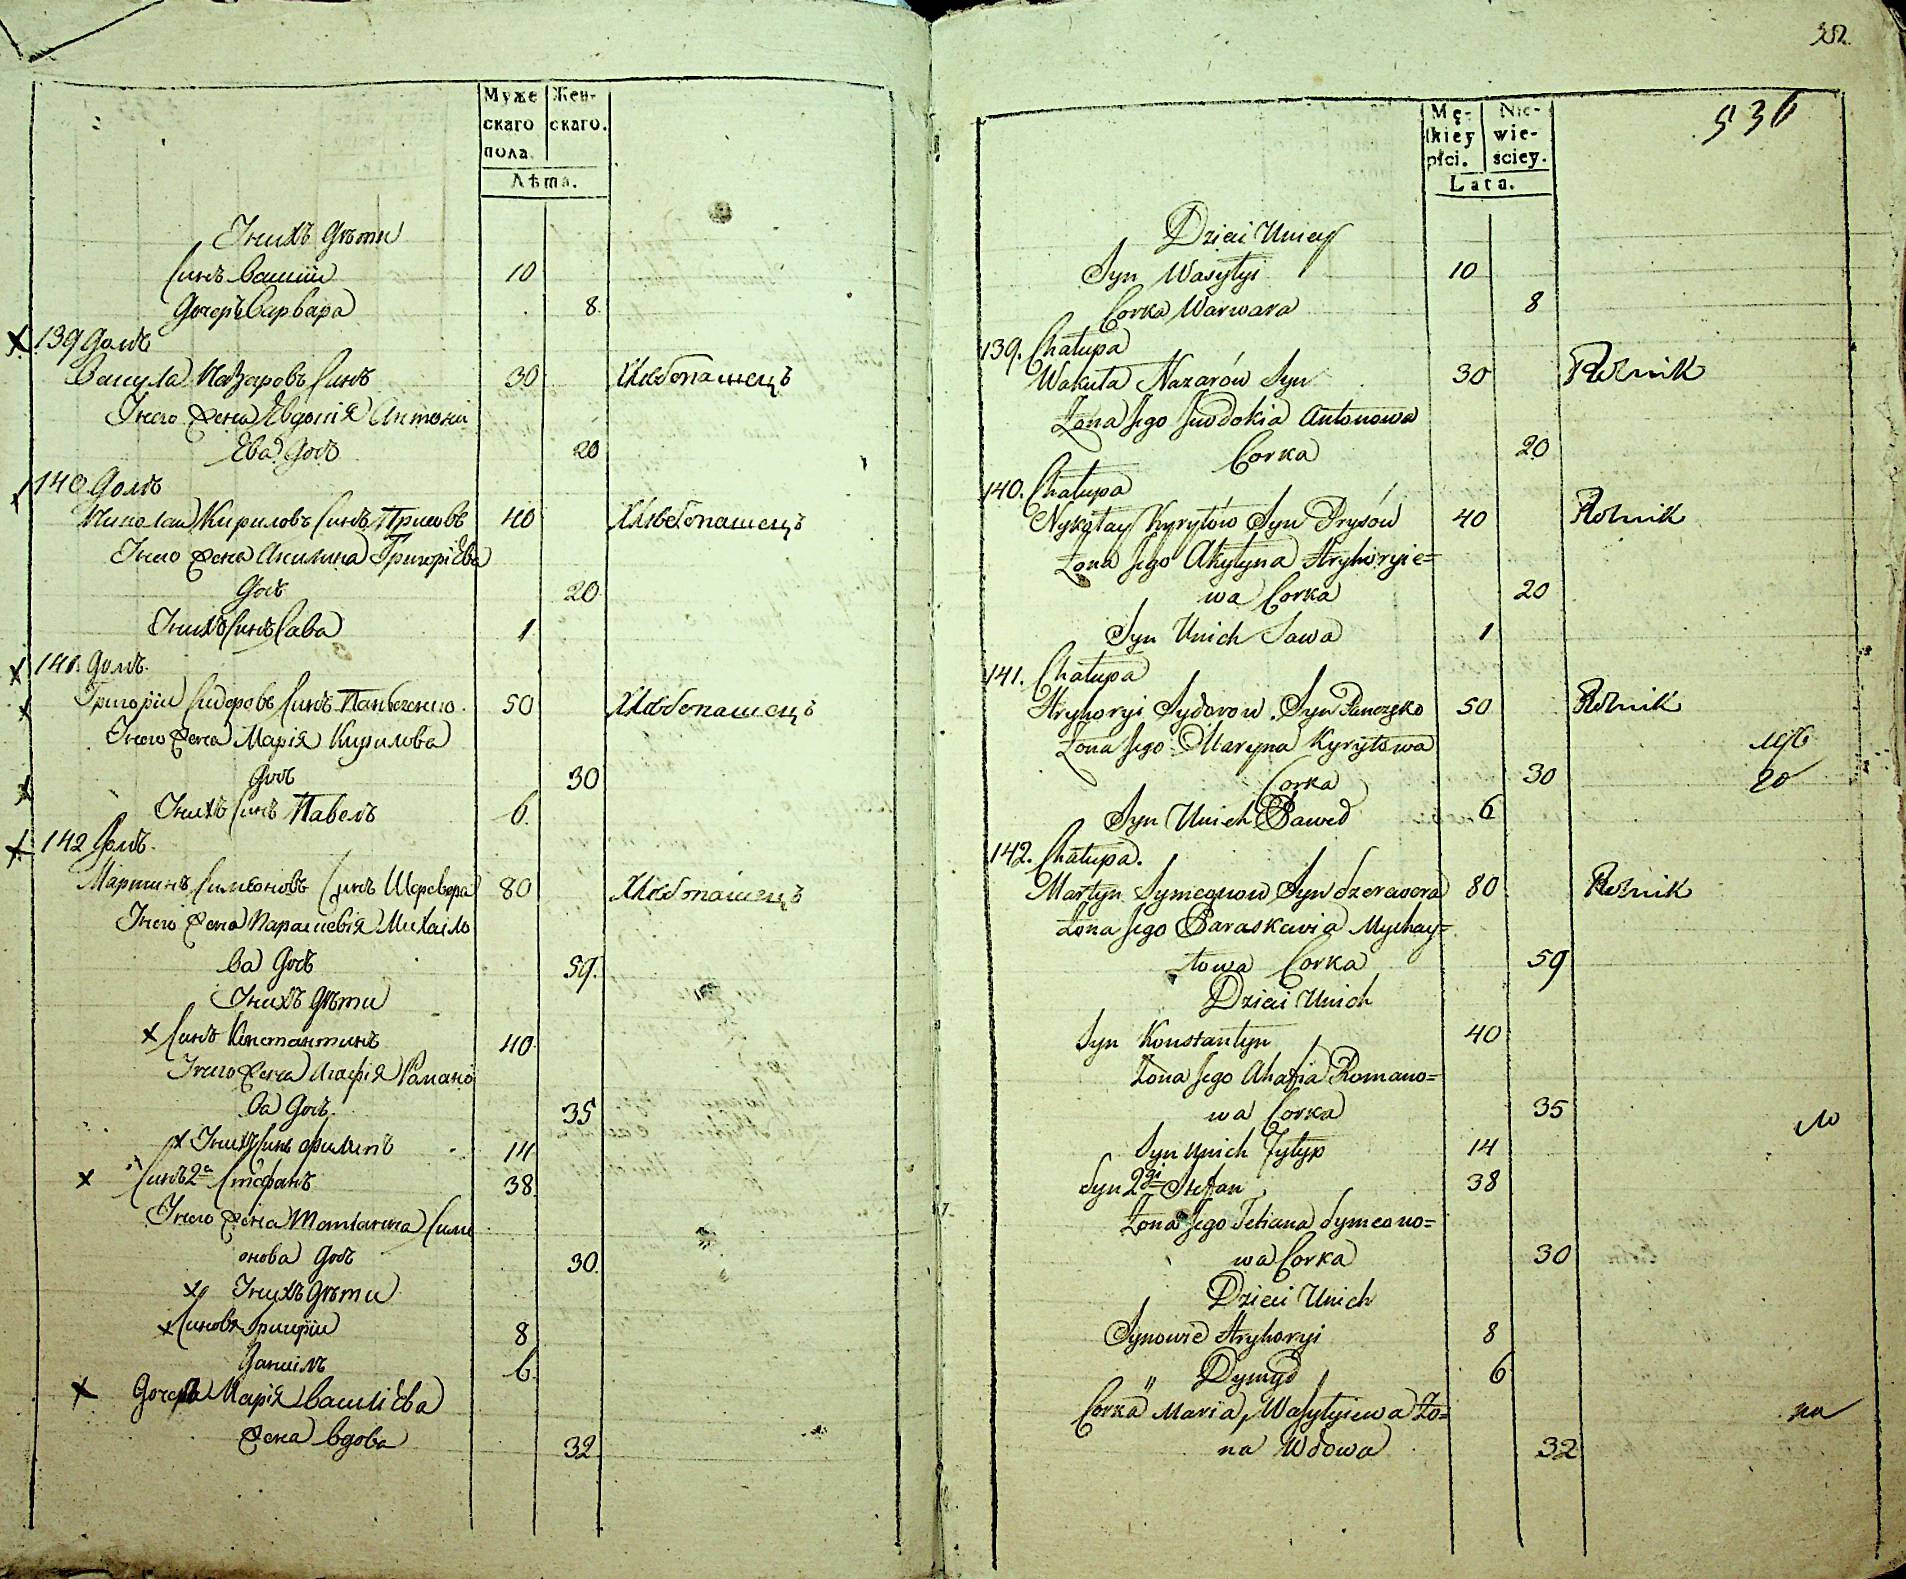 Муже
скаго
пола.
Жен-
скаго.
Лѣта.
Унихъ Дѣти
Синъ Василій 10
Дочерь Варвара 8
139 Домъ
Вакула Назаровъ Синъ 30 Хлѣбопашецъ
У него Жена Евдокія Антоні
Ева Доч 20
140 Домъ
Николай Кириловъ Синъ Присовъ 40 Хлѣбопашецъ
У него Жена Акилина Григоріева
Доч 20
Унихъ Синъ Сава 1
141. Домъ.
Григорій Сидоровъ Синъ 50 Хлѣбопашецъ
У него Жена Марія Кирилова
Доч 30
Унихъ Синъ Павелъ 6.
142 Домъ.
Мартинъ Симеоновъ Синъ Шеревера 80 Хлѣбопашецъ
У него Жена Параскевія Михайло
ва Доч 59.
Унихъ Дѣти
Синъ Константинъ 40.
У него Жена Агафія Романо
ва Доч. 35
Унихъ Синъ Филипъ 14
Синъ 2й Стефанъ 38.
У него Жена Татіанна Симе
онова Доч 30.
Унихъ Дѣти
Синовя Григорій 8
Даниилъ 6.
Дочера Марія Василіева
Жена Вдова 32
352.
536
Mę-
skiey
płci.
Nie-
wie-
sciey.
Lata.
Dzieci Unich
Syn Wasyłyi 10
Corka Warwara 8
139. Chałupa
Wakuła Nazarów Syn 30 Rolnik
Zona Jego Jewdokia Antonowa
Corka 20
140. Chałupa
Nykołay Kyryłów Syn Prysów 40 Rolnik
Zona Jego Akylyna Hryhoryie=
wa Corka 20
Syn Unich Sawa 1
141. Chałupa
Hryhoryi Sydorow Syn Panczęko 50 Rolnik
Zona Jego Maryna Kyryłowa
Corka 30
Syn Unich Paweł 6
142. Chałupa.
Martyn Symeonow Syn Szerawera 80 Rolnik
Zona Jego Paraskewia Myhay=
łowa Corka 59
Dzieci Unich
Syn Konstantyn 40
Zona Jego Ahafia Romano=
wa Corka 35
Syn Unich Fyłyp 14
Syn 2gi Stefan 38
Zona Jego Tetiana Symeono=
wa Corka 30
Dzieci Unich
Synowie Hryhoryi 8
" Dymyd 6
Corka Maria, Wasyłyiewa Zo=
na Wdowa 32